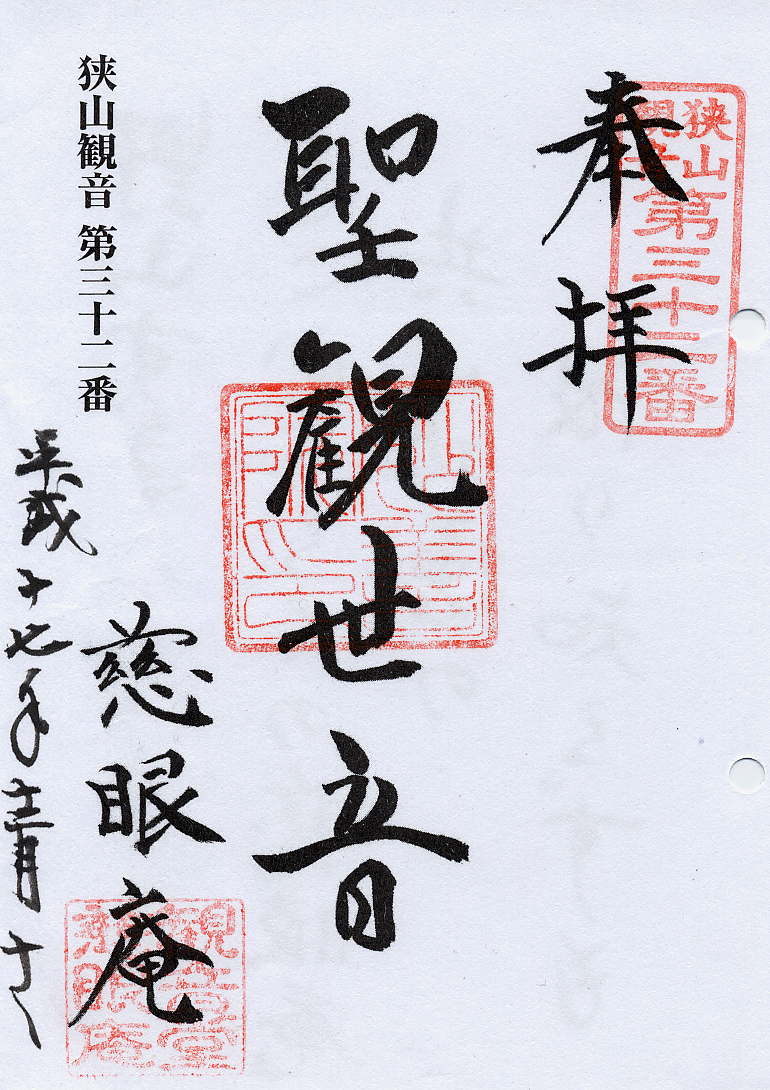 奉拝
狭山
観音
第三十二番
聖観世音
慈眼庵
観音堂
慈眼庵
狭山観音 第三十二番
平成十七年十二月十